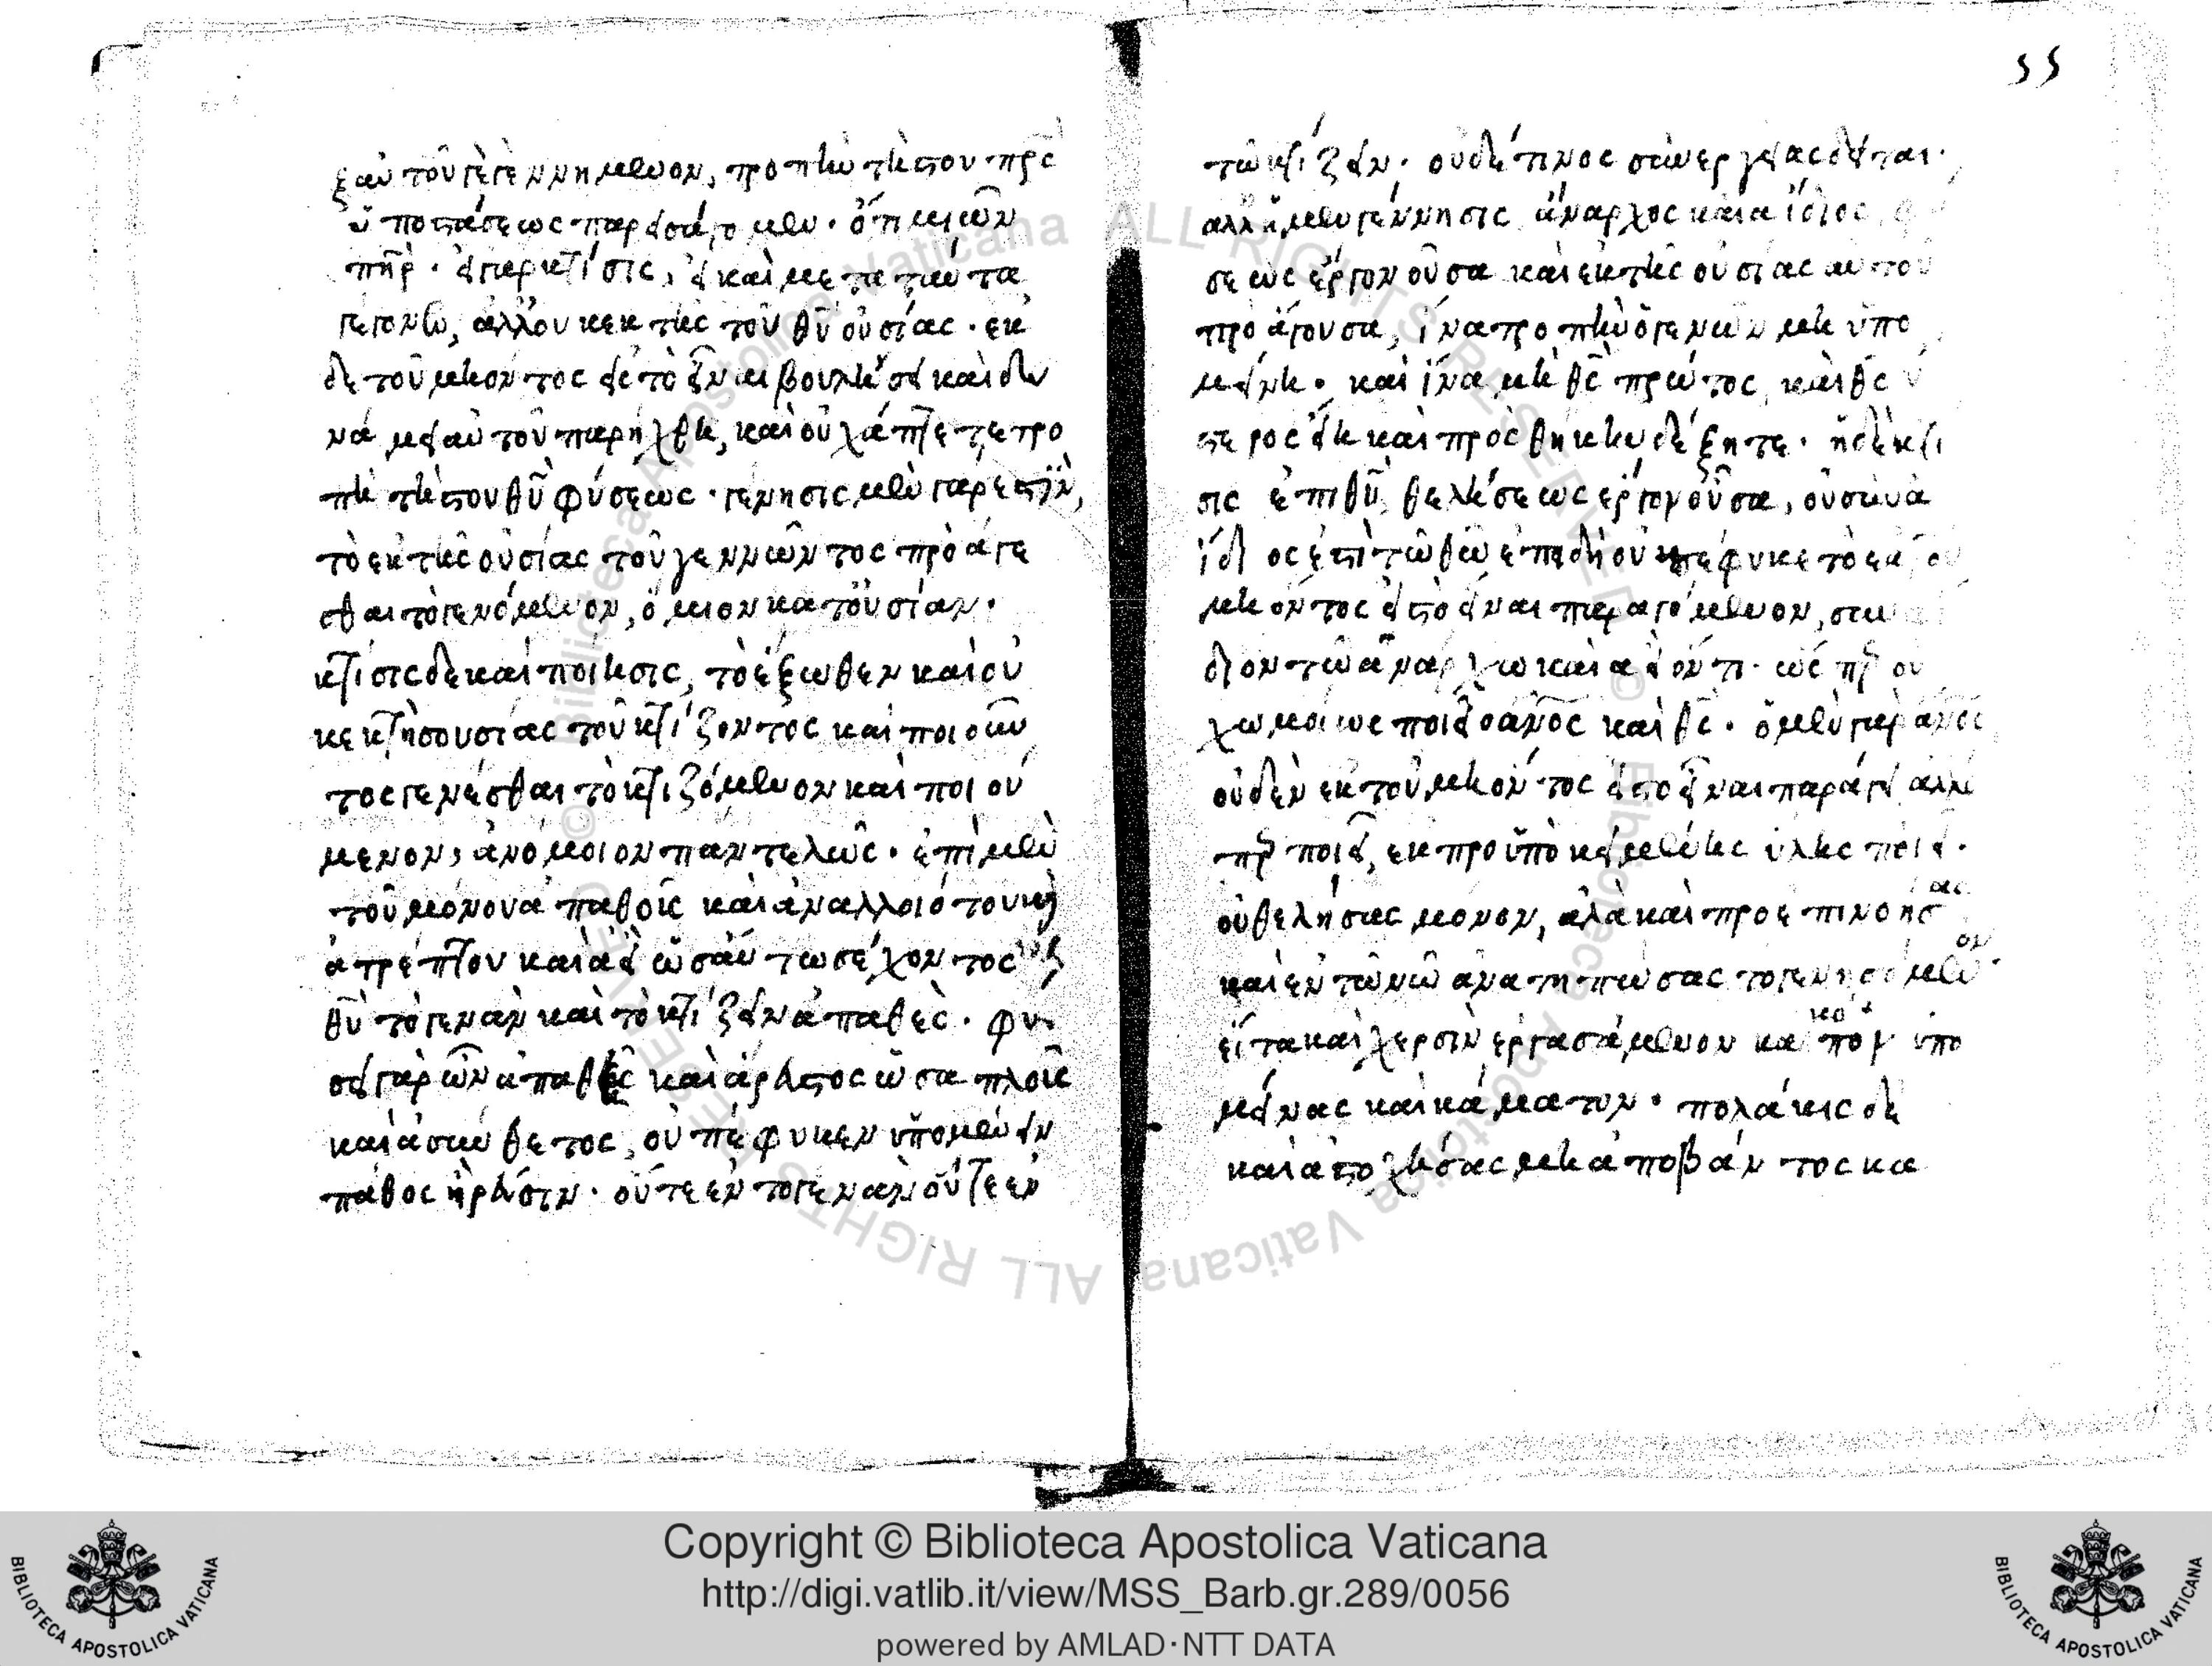 ξ αὐτοῦ γεγεννημένον, τροπὴν τῆς του πρς
ὑποστάσεως παρεισάγομεν. ὅτι μι ὢν
πηρ. εἰ γαρ κτίσις, εἰ καὶ μετα ταύτα
γέγονεν, ἀλλ οὐκ εκ τῆς τοῦ θυ οὐσίας. εκ
δε τοῦ μη ὄντος εἰς τὸ εἶναι βουλήσει καὶ δυ
νάμει αὐτοῦ παρήχθη, καὶ οὐχ άπτεται τρο
πὴ τῆς του θυ φύσεως. γέννησις μὲν γάρ ἐστὶν,
τὸ ἐκ τῆς οὐσίας τοῦ γεννῶντος προάγε
σθαι τὸ γενόμενον, ὅμιον κατ οὐσίαν.
κτίσις δε καὶ ποίησις, τὸ ἔξωθεν καὶ οὐ
κ εκ τῆς ουσίας τοῦ κτίζοντος καὶ ποιοῦν
τος γενέσθαι τὸ κτιζόμενον καὶ ποιού
μενον, ἀνόμοιον παντελῶς. ἐπὶ μὲν
τοῦ μόνου ἀπαθοῖς καὶ ἀναλλοιότου κὶ
ἀτρέπτου καὶ ἀεὶ ὡσαύτωσ έχοντος
θυ τὸ γενὰν καὶ τὸ κτίζειν ἀπαθὲς. φύ
σει γὰρ ὢν ἀπαθὴς καὶ ἄρευστος ὡσ ἁπλοῖς
καὶ ἀσύνθετος, οὐ πέφυκεν ὑπομένειν
πάθος ἢ ρεύσιν. οὔτε ἐν το γενὰν οὔτε ἐν
55
τῶ κτίζειν. οὐδέ τινος συνεργείας δέεται.
αλλ ἡ μὲν γέννησις ἄναρχος καὶ αΐδιος
σεως ἔργον οὖσα καὶ ἐκ τῆς οὐσίας αὐτοῦ
προάγουσα, ἵνα τροπὴν ὁ γενῶν μὴ ὑπο
μείνη. καὶ ἵνα μὴ θς πρῶτος, καὶ θς ὑ
στερος εἴη καὶ προσθήκην δέξητε. ἡ δὲ κτί
σις ἐπὶ θυ θελήσεως ἔργον οὖσα, οὐ συνα
ΐδιος ἐστὶ τῶ θεῶ ἐπειδὴ οὐ πέφυκε τὸ εκ τοῦ
μὴ όντος εἰς τὸ εἶναι παραγόμενον, συν
διον τῶ ἀνάρχω καὶ αεὶ όντι. ὡς περ ου
χ ομοίως ποιεῖ ο ανος καὶ θς. ὁ μὲν γαρ ανος
οὐδὲν εκ τοῦ μὴ όντος εἰς το εἶναι παράγει αλλ
περ ποιεῖ, εκ προϋποκειμένης ύλης ποιεῖ.
οὐ θελήσας μονον, αλὰ καὶ προεπινοήσας
καὶ ἐν τῶ νῶ ἀνατηπώσας το γενησόμενον
εἴτα καὶ χερσὶν ἐργασάμενον καὶ κόπον ὑπο
μείνας καὶ κάματον. πολάκις δε
καὶ ἀστοχήσας μὴ ἀποβάντος κα
Copyright © Biblioteca Apostolica Vaticana
http://digi.vatlib.it/view/MSS_Barb.gr.289/0056
powered by AMLAD·NTT DATA
BIBLIOTECA APOSTOLICA VATICANA
BIBLIOTECA APOSTOLICA VATICANA